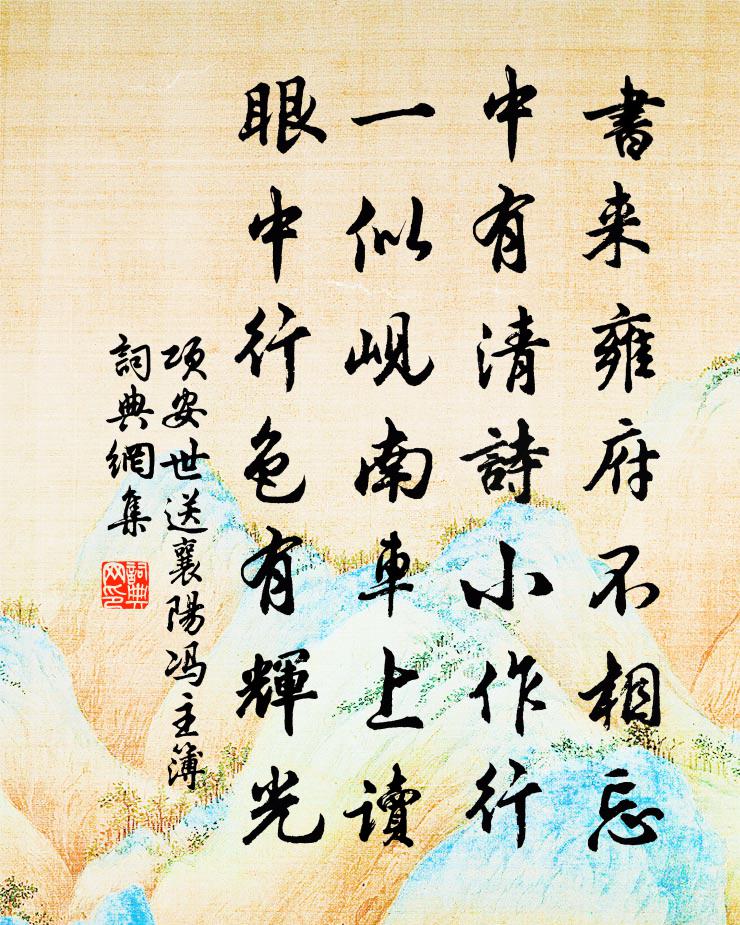 書来雍府不相忘
中有清詩小作行
一似峴南車上读
眼中行色有輝光
项安世送襄陽冯主簿
詞典網集
詞典
网印